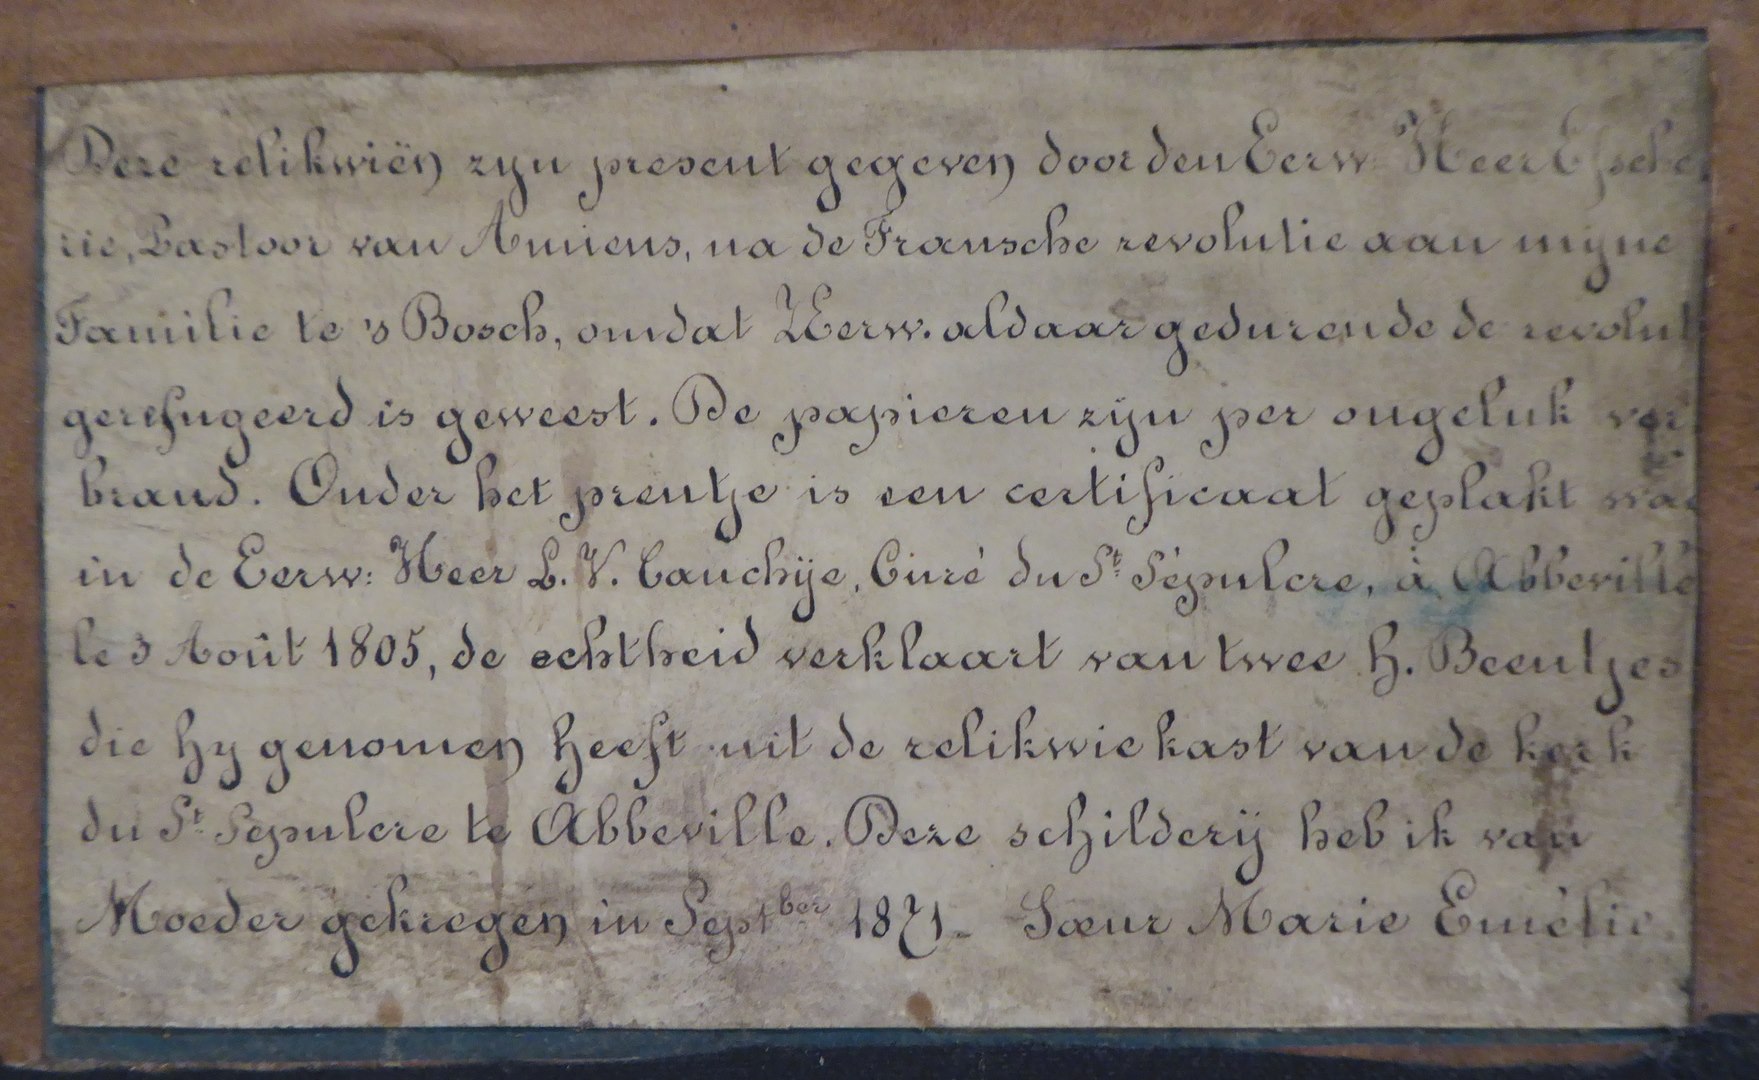 Deze relikwiën zyn present gegeven door den Eerw. Heer
rie, Pastoor van Amiens, na de Fransche revolutie aan myne
Familie te 's Bosch, omdat ZEerw. aldaar gedurende de revolut
gerefugeerd is geweest. De papieren zijn per ongeluk ver
brand. Onder het prentje is een certificaat geplakt waa
in de Eerw: Heer L. V. Cauchÿe, Curé du St. Sépulcre, à Abbeville
le 3 Août 1805, de echtheid verklaart van twee H. Beentjes
die hy genomen heeft uit de relikwie kast van de kerk
du St. Sepulcre te Abbeville. Deze schilderij heb ik van
Moeder gekregen in Septber 1871. Sœur Marie Emélie.